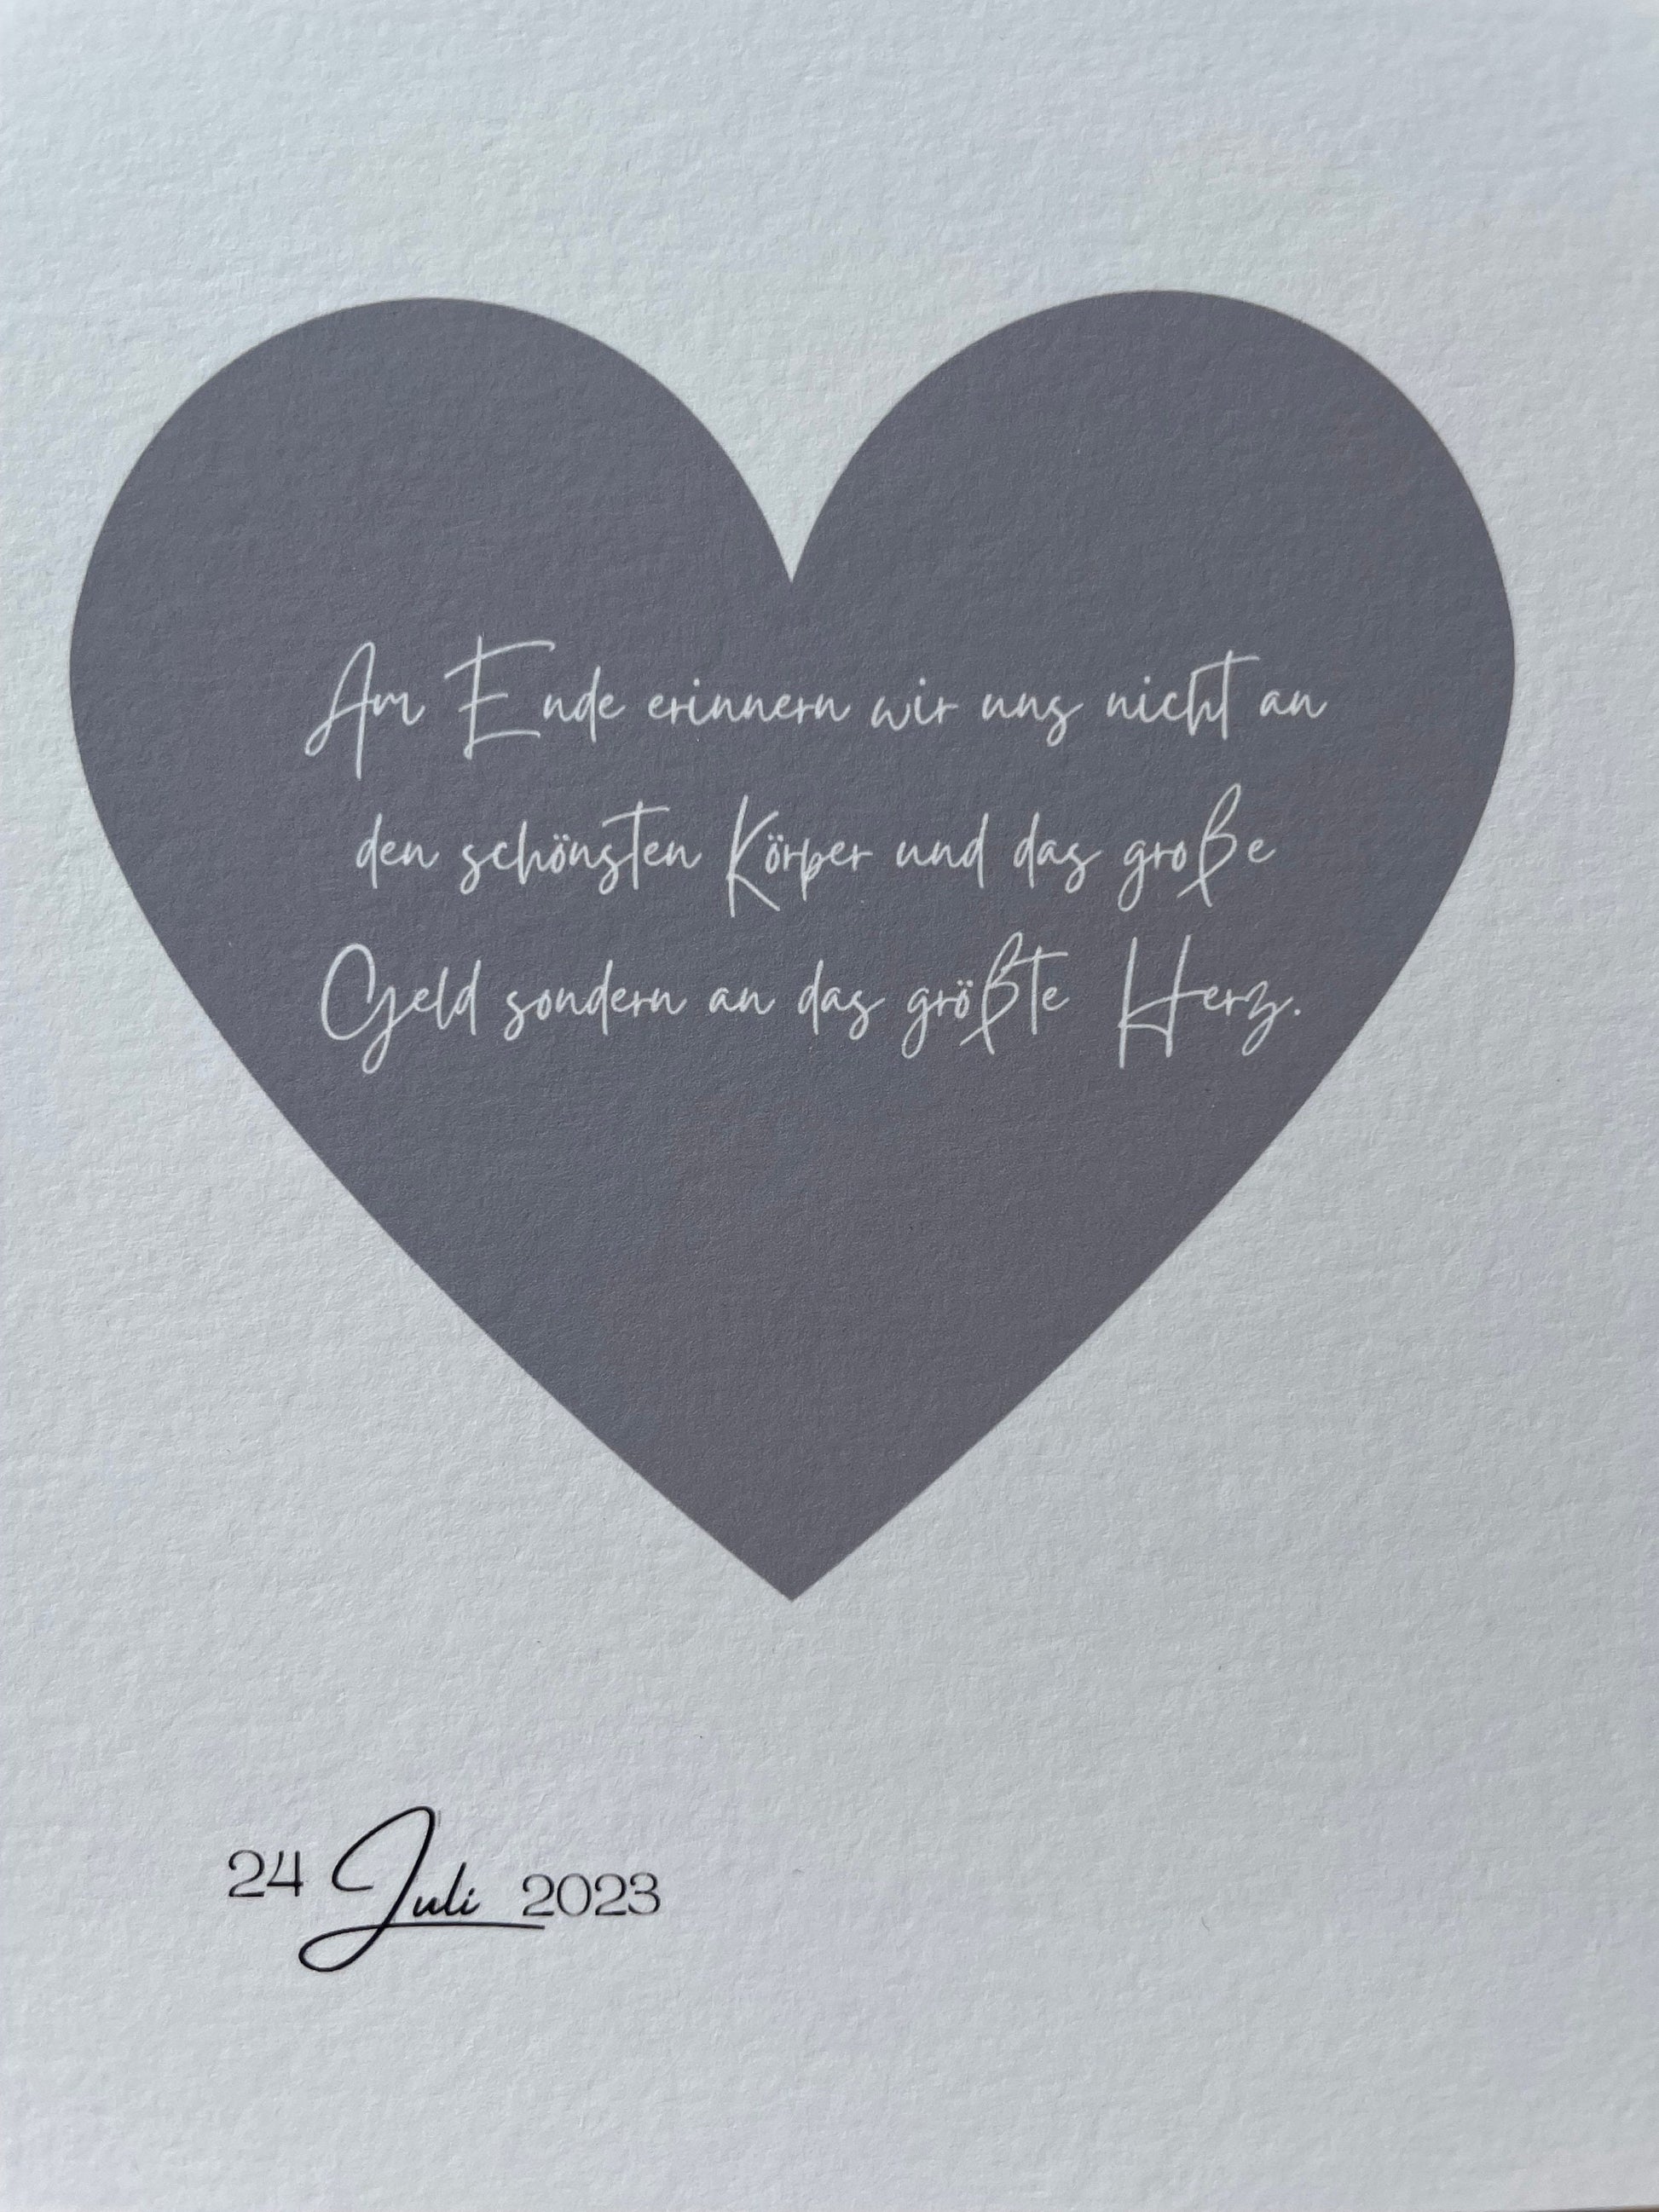 Am Ende erinnern wir uns nicht an
den schönsten Körper und das große
Geld sondern an das größte Herz.
24 Juli 2023